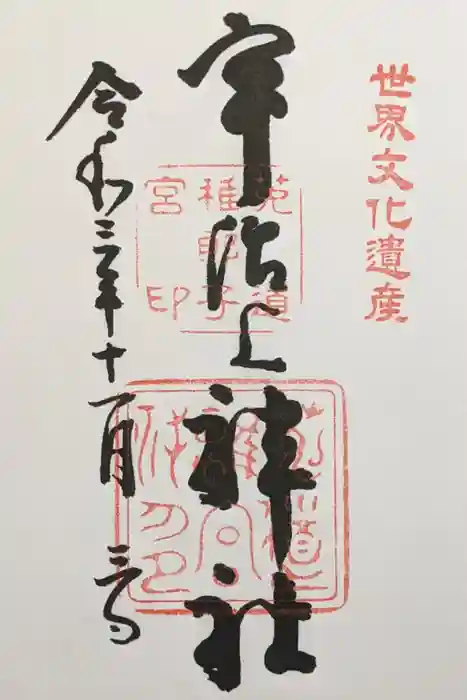 世界文化遺産
宇治上神社
菟道
稚郎子
宮印
令和三年十一月三日